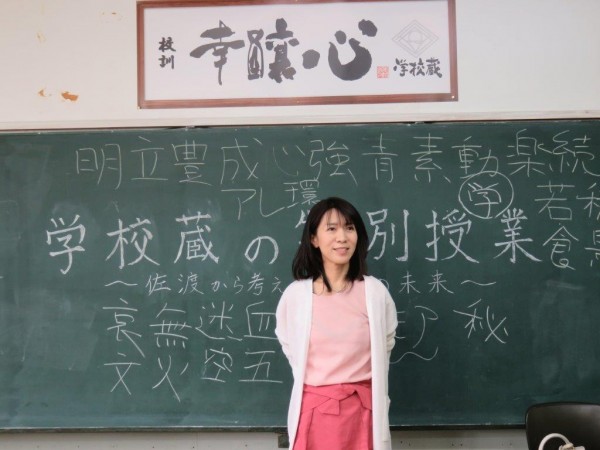 校訓 幸醸心 学校蔵
明立豊成心強青素動楽続
アレ環 学 若
学校蔵の 別授業 食
～佐渡から考え の未来～
哀無迷血 秘
文火空五